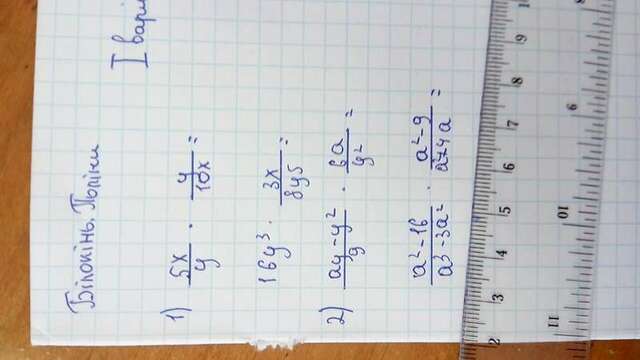 Білокінь. Поліни
І варі
1) 5x/y · y/10x =
16y³ · 3x/8y5 =
2) ay-y²/9 · 6a/y² =
a²-16/a³-3a² · a²-9/a²+4a =
2 3 4 5 6 7 8 9 10
11 10 9